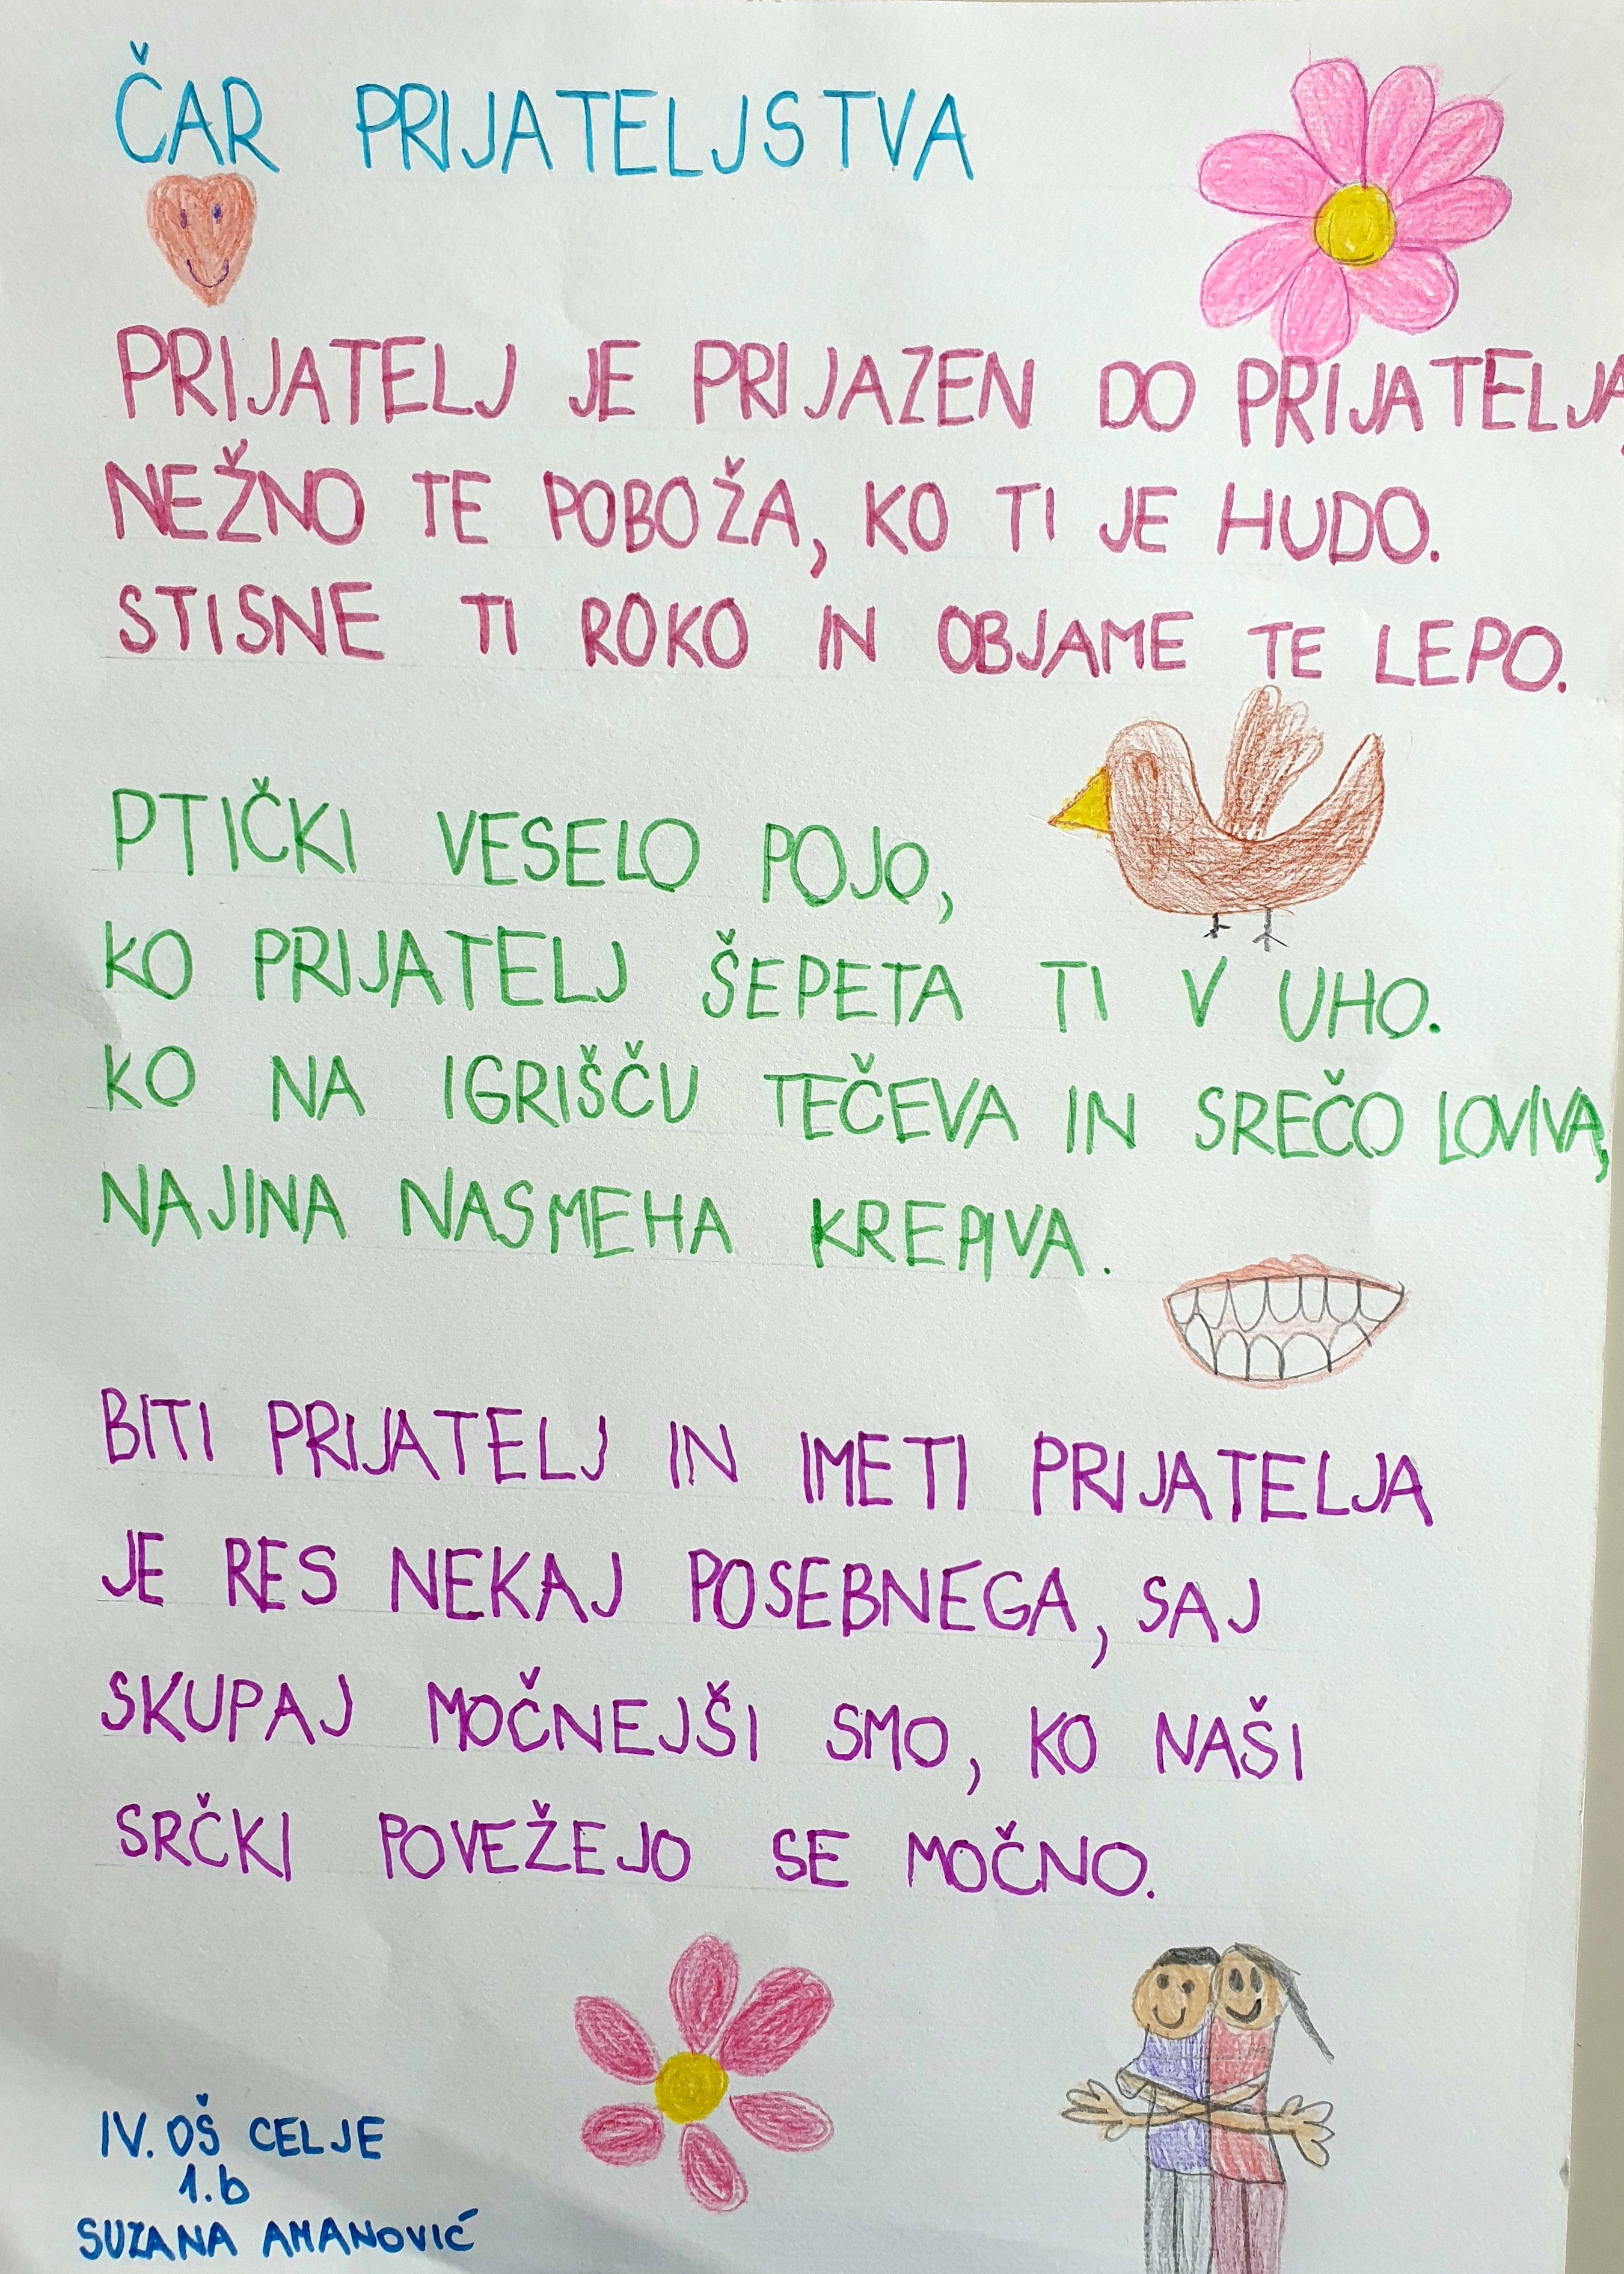 ČAR PRIJATELJSTVA
PRIJATELJ JE PRIJAZEN DO PRIJATELJA,
NEŽNO TE POBOŽA, KO TI JE HUDO.
STISNE TI ROKO IN OBJAME TE LEPO.
PTIČKI VESELO POJO,
KO PRIJATELJ ŠEPETA TI V UHO.
KO NA IGRIŠČU TEČEVA IN SREČO LOVIVA,
NAJINA NASMEHA KREPIVA.
BITI PRIJATELJ IN IMETI PRIJATELJA
JE RES NEKAJ POSEBNEGA, SAJ
SKUPAJ MOČNEJŠI SMO, KO NAŠI
SRČKI POVEŽEJO SE MOČNO.
IV. OŠ CELJE
1.b
SUZANA AMANOVIĆ